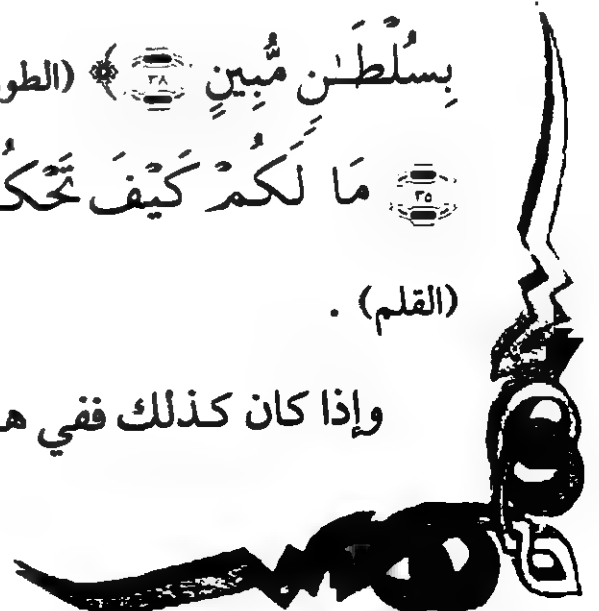 بِسُلْطَـٰنٍ مُّبِينٍ ٣٨ ﴾ (الطور
٣٥ مَا لَكُمْ كَيْفَ تَحْكُ
(القلم) .
وإذا كان كذلك ففي هـ